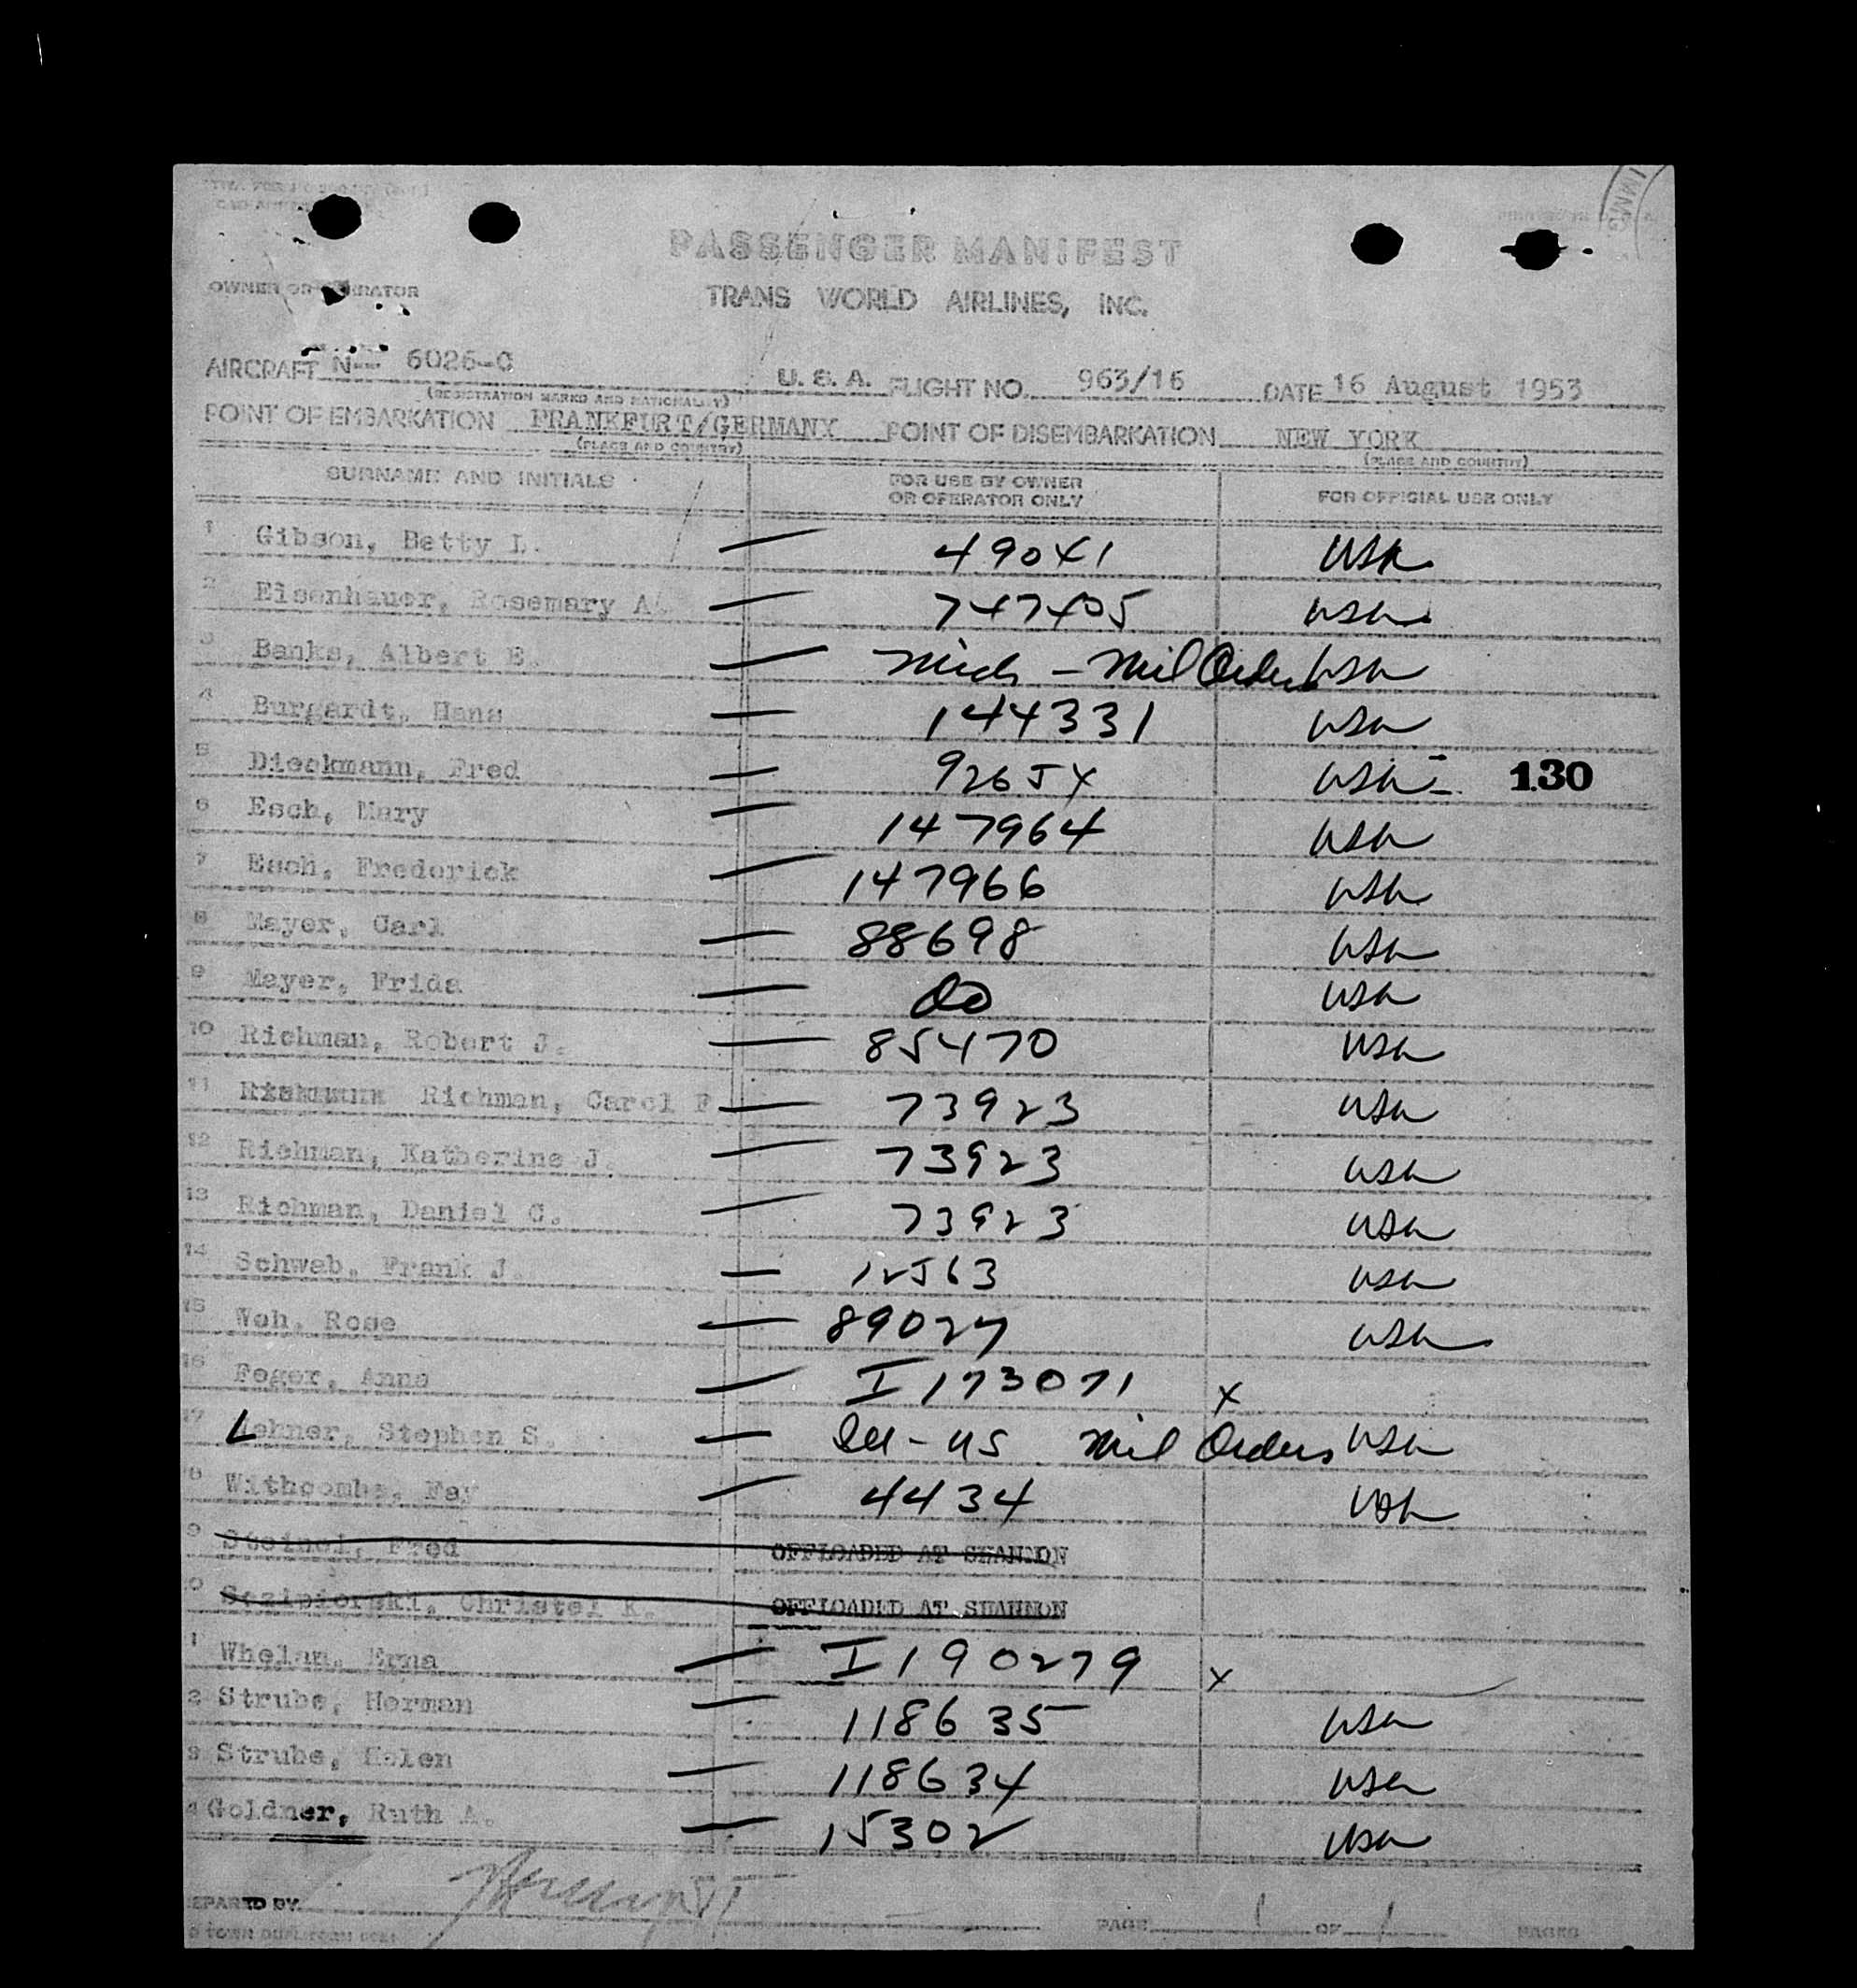 IMMIG
PASSENGER MANIFEST
OWNER OR OPERATOR
TRANS WORLD AIRLINES, INC.
AIRCRAFT N-- 6026-C U. S. A. FLIGHT NO. 963/16 DATE 16 August 1953
(REGISTRATION MARKS AND NATIONALITY)
POINT OF EMBARKATION FRANKFURT/GERMANY POINT OF DISEMBARKATION NEW YORK
(PLACE AND COUNTRY) (PLACE AND COUNTRY)
SURNAME AND INITIALS FOR USE BY OWNER OR OPERATOR ONLY FOR OFFICIAL USE ONLY
1 Gibson, Betty L. — 49041 USA
2 Eisenhauer, Rosemary A. — 747405 USA
3 Banks, Albert E. — Mil Orders USA
4 Burgardt, Hans — 144331 USA
5 Dieckmann, Fred — 92654 USA - 130
6 Esch, Mary — 147964 USA
7 Esch, Frederick — 147966 USA
8 Mayer, Carl — 88698 USA
9 Mayer, Frida — Do USA
10 Richman, Robert J. — 85470 USA
11 Richman, Carol F — 73923 USA
12 Richman, Katherine J. — 73923 USA
13 Richman, Daniel C. — 73923 USA
14 Schwab, Frank J. — 12563 USA
15 Weh, Rose — 89027 USA
16 Feger, Anna — I173071 x
17 Lehner, Stephen S. — US Mil Orders USA
8 Withcombe, Fay — 4434 USA
9 Steinel, Fred OFFLOADED AT SHANNON
0 Christel K. OFFLOADED AT SHANNON
1 Whelan, Erna — I190279 x
2 Strube, Herman — 118635 USA
3 Strube, Helen — 118634 USA
4 Goldner, Ruth A. — 15302 USA
EPARED BY PAGE 1 OF 1 PAGES